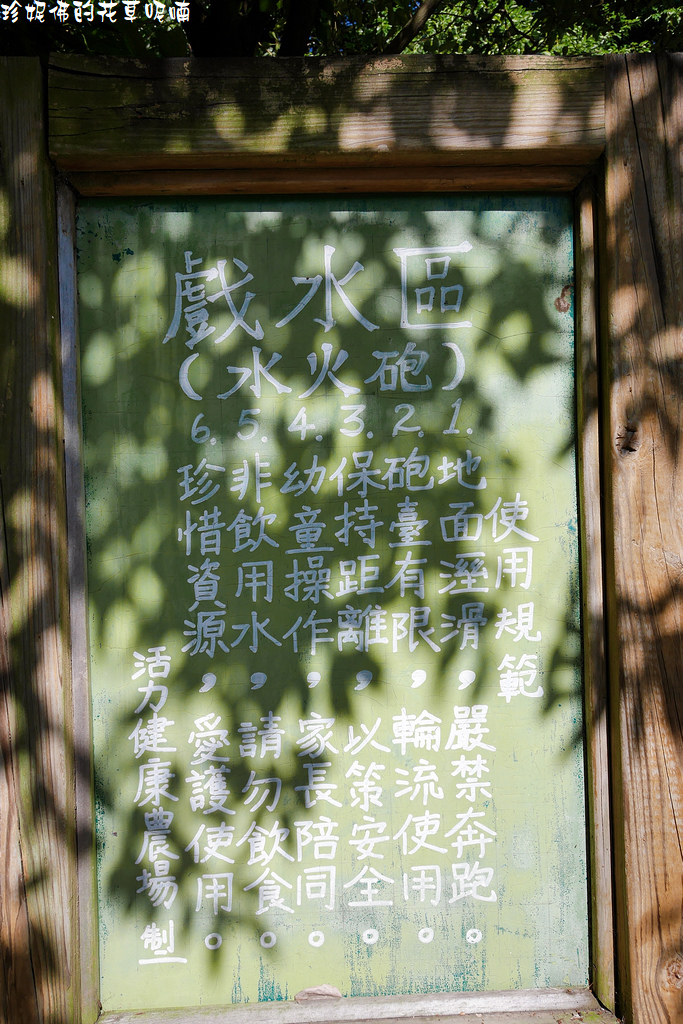 珍妮佛的花草呢喃
戲水區
(水火砲)
使用規範
1.地面溼滑，嚴禁奔跑。
2.砲臺有限，輪流使用。
3.保持距離，以策安全。
4.幼童操作，家長陪同。
5.非飲用水，請勿飲食。
6.珍惜資源，愛護使用。
活力健康農場 制